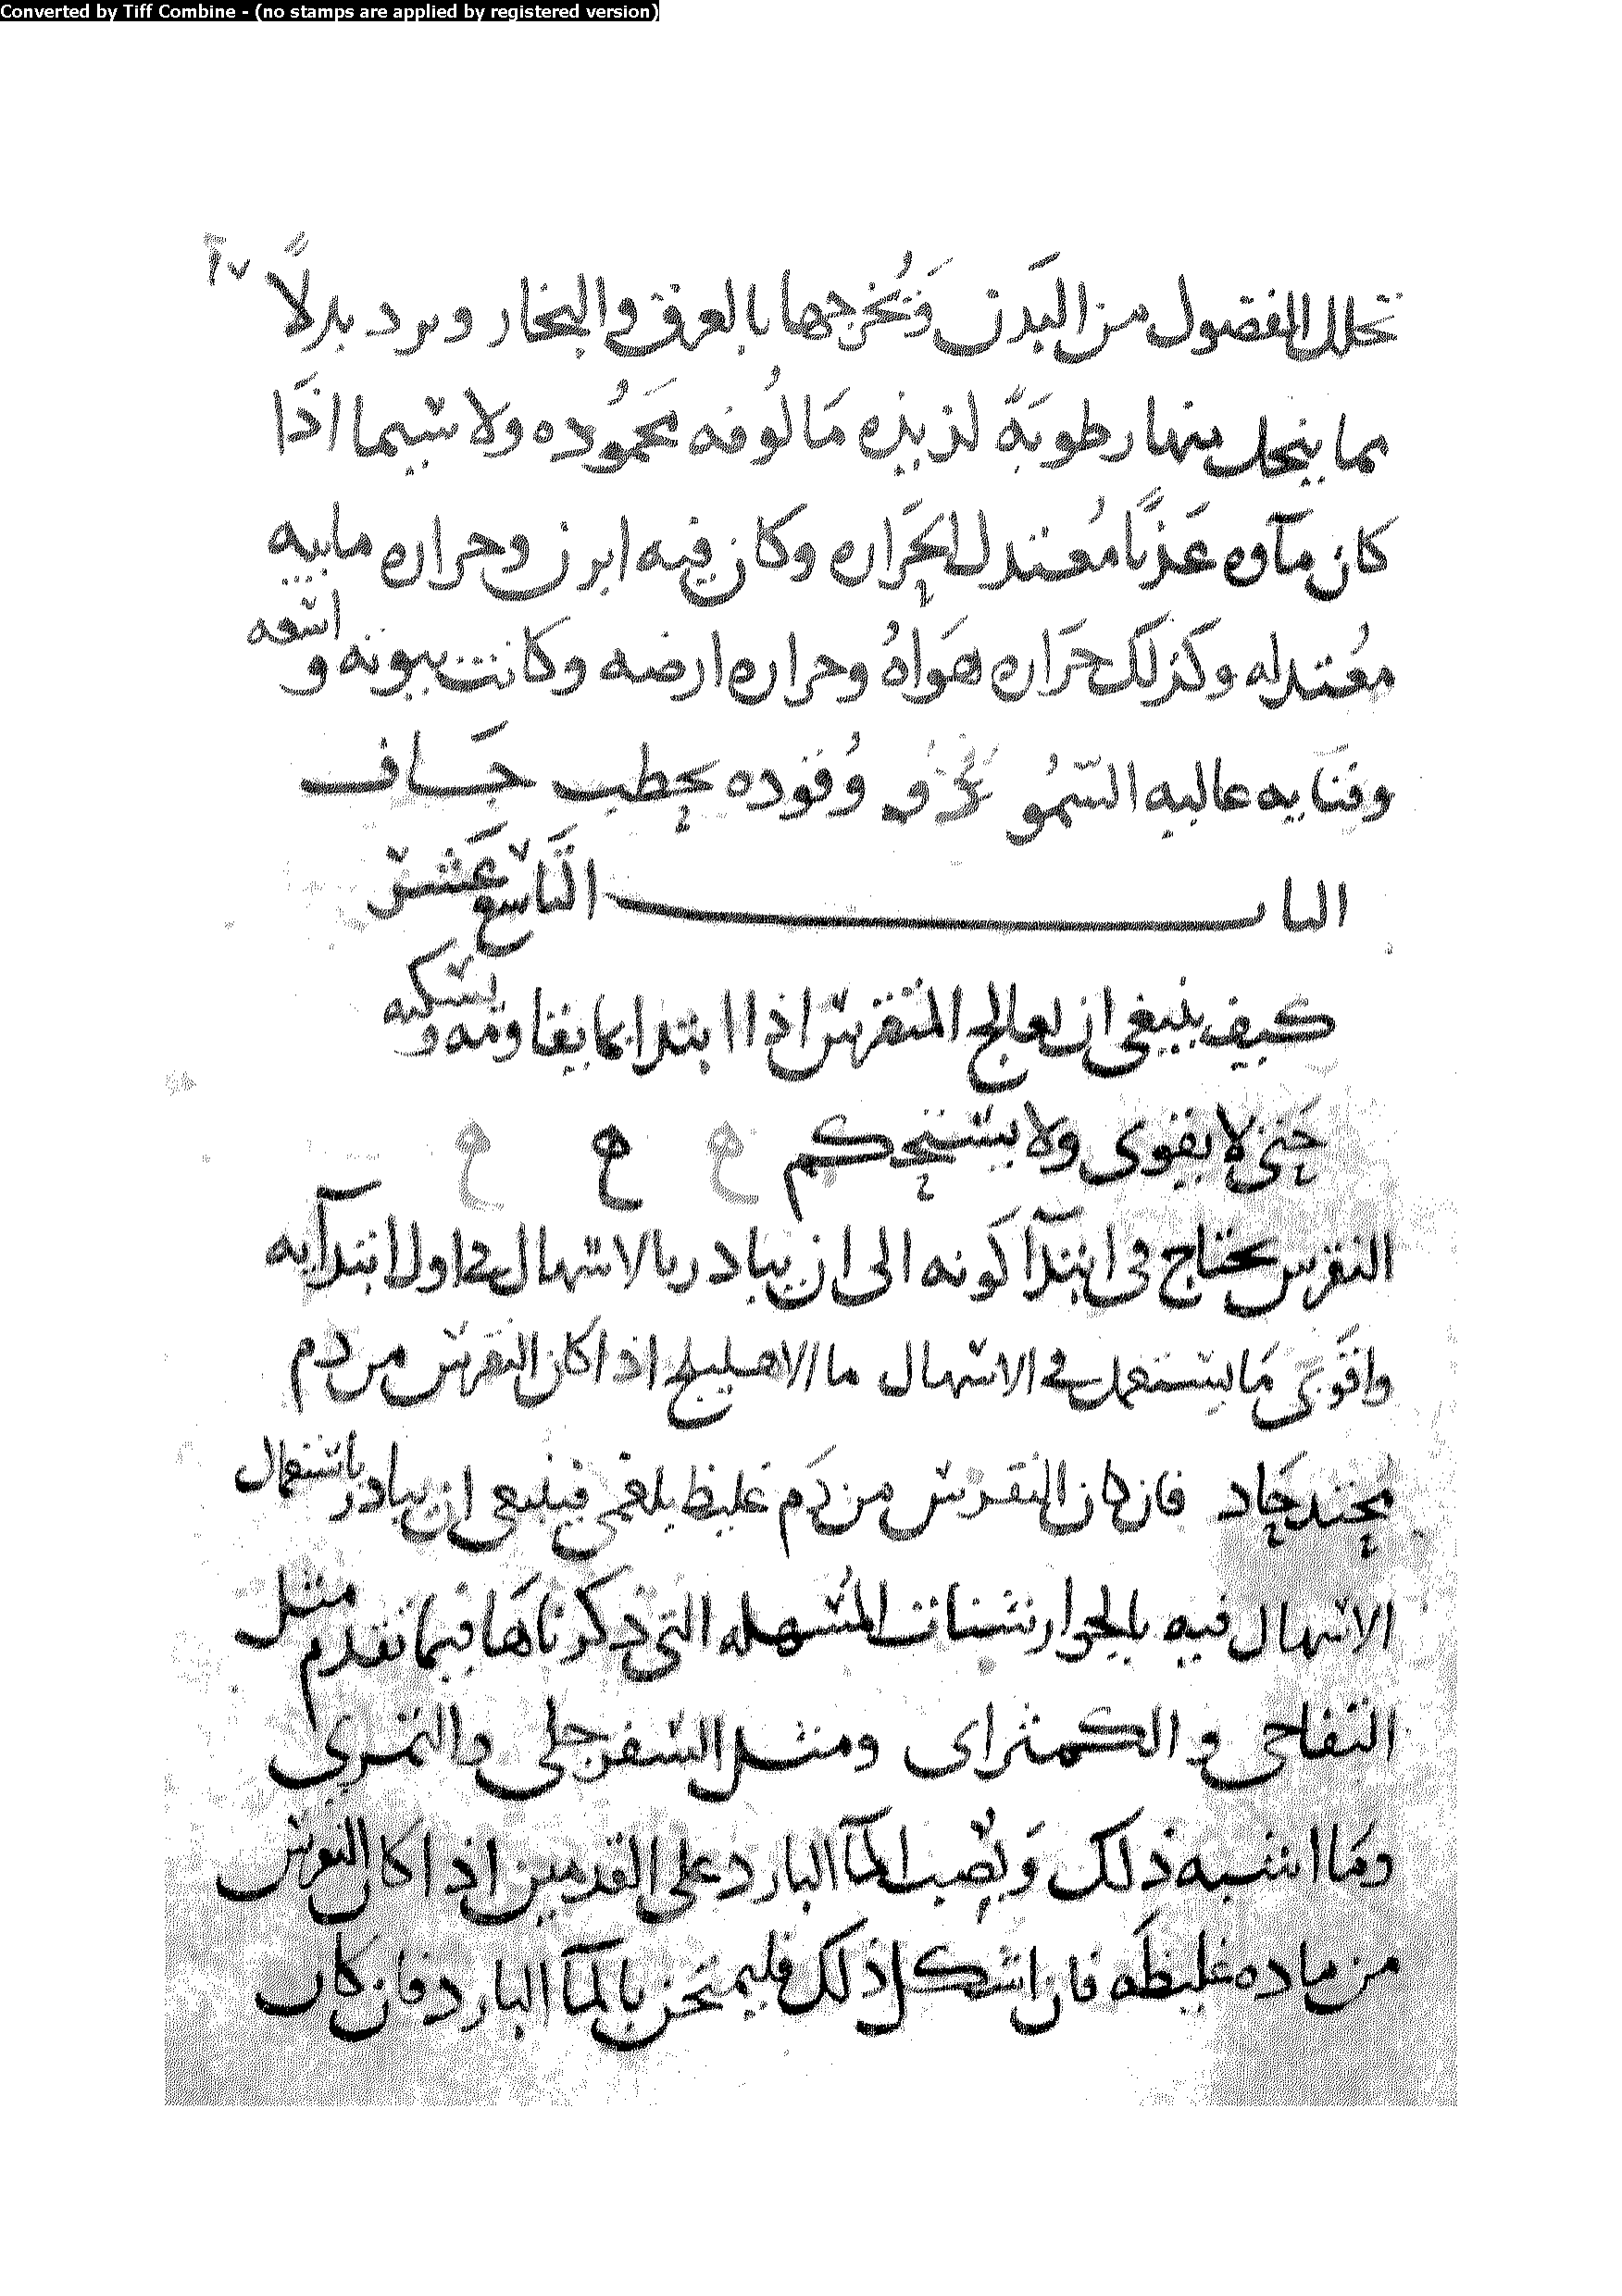 Converted by Tiff Combine - (no stamps are applied by registered version)
تحلل الفضول من البَدن وَتُخرجها بالعرق والبخار وىرد بدلًا
مما ينحل منها رطوبَةً لذيذه مَالُوفه محمُوده ولا سيما اذَا
كان مآوه عَذبًا مُعتدل الحَراره وكان فيه ابزن وحراره مايىه
مُعتدله وكذلك حَراره هَوَاهُ وحراره ارضه وكانت بيوته واسعه
وقبَابه عاليه السمُو وُقوده بحطب جَاف
الباب التَاسع عَشر
كيف ينبغي ان يعالج المنقرس اذا ابتدا بما يقاومه ويسَكنه
حَتى لا يقوى ولا يستحكم
ه ه ه
النقرس يحتاج في ابتدآ كَونه الى ان يبادر بالاسهال في اول ابتدآيه
واقوَى مَا يستعمل في الاسهال ما الاهليلج اذا كان النقرس من دم
محتد حَاد فان كان النقرس من دَم غليظ بلغمي فينبغي ان يبادر باستعمال
الاسهال فيه بالجوارشنات المُسهله التي ذكرناهَا فيما تقدم مثل
التفاحي والكمثراى ومثل السفرجلي والتمري
ومَا اشبه ذلك وَيُصب المآ البارد على القدمين اذا كان النقرس
من ماده غليظَه فان اشكل ذلك فليمتحن بالمآ البارد فان كان